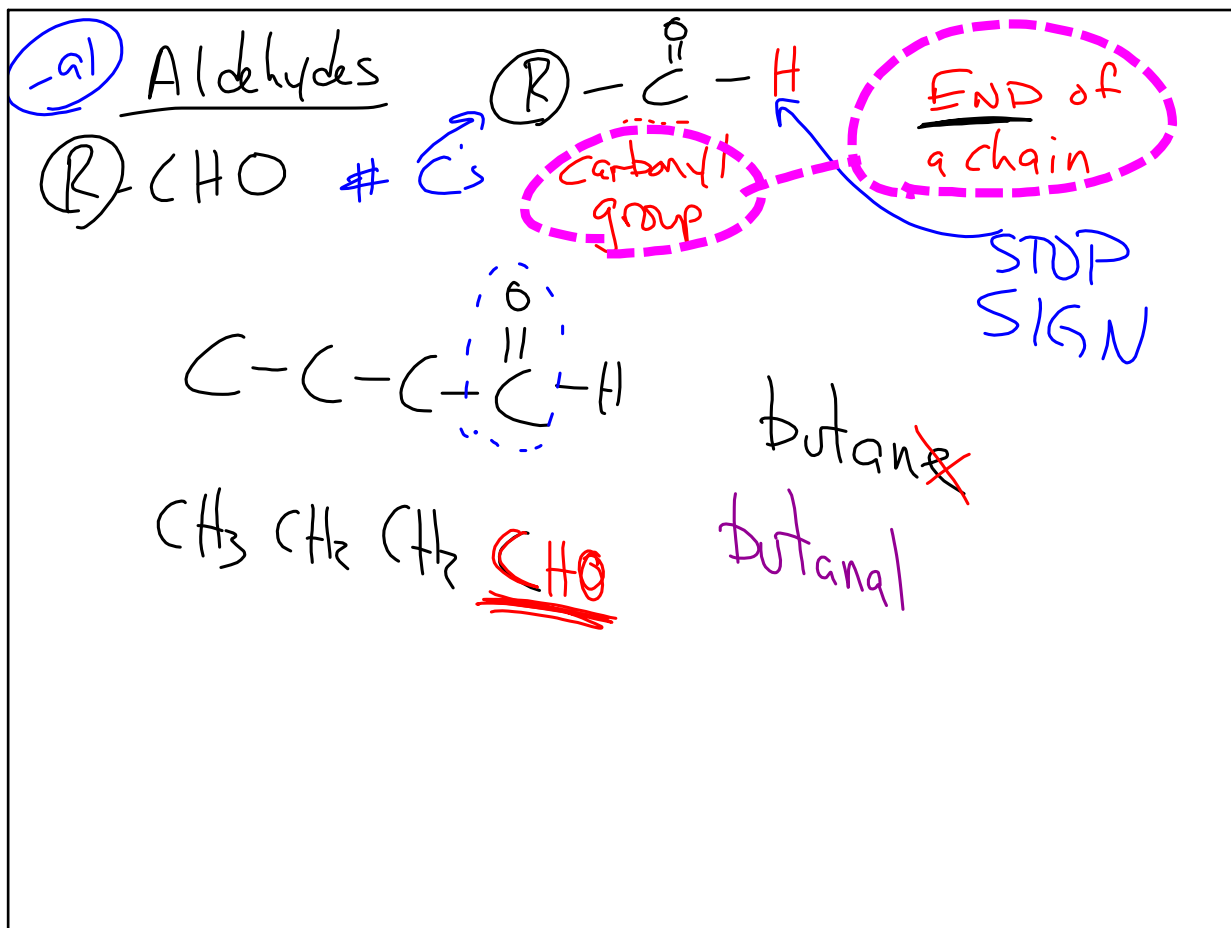 -al Aldehydes
R - C - H
O
END of
a chain
R-CHO # C's
carbonyl
group
STOP
SIGN
O
C - C - C - C - H
butane
butanal
CH3 CH2 CH2 CHO